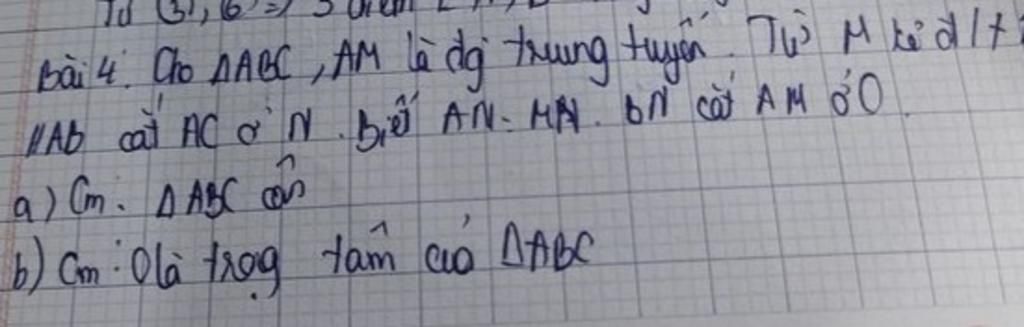 Bài 4. Cho ΔABC, AM là đg trung tuyến. Từ M kẻ đ/t
//AB cắt AC ở N. Biết AN = MN. BN cắt AM ở O.
a) Cm: ΔABC cân
b) Cm: O là trọg tâm của ΔABC